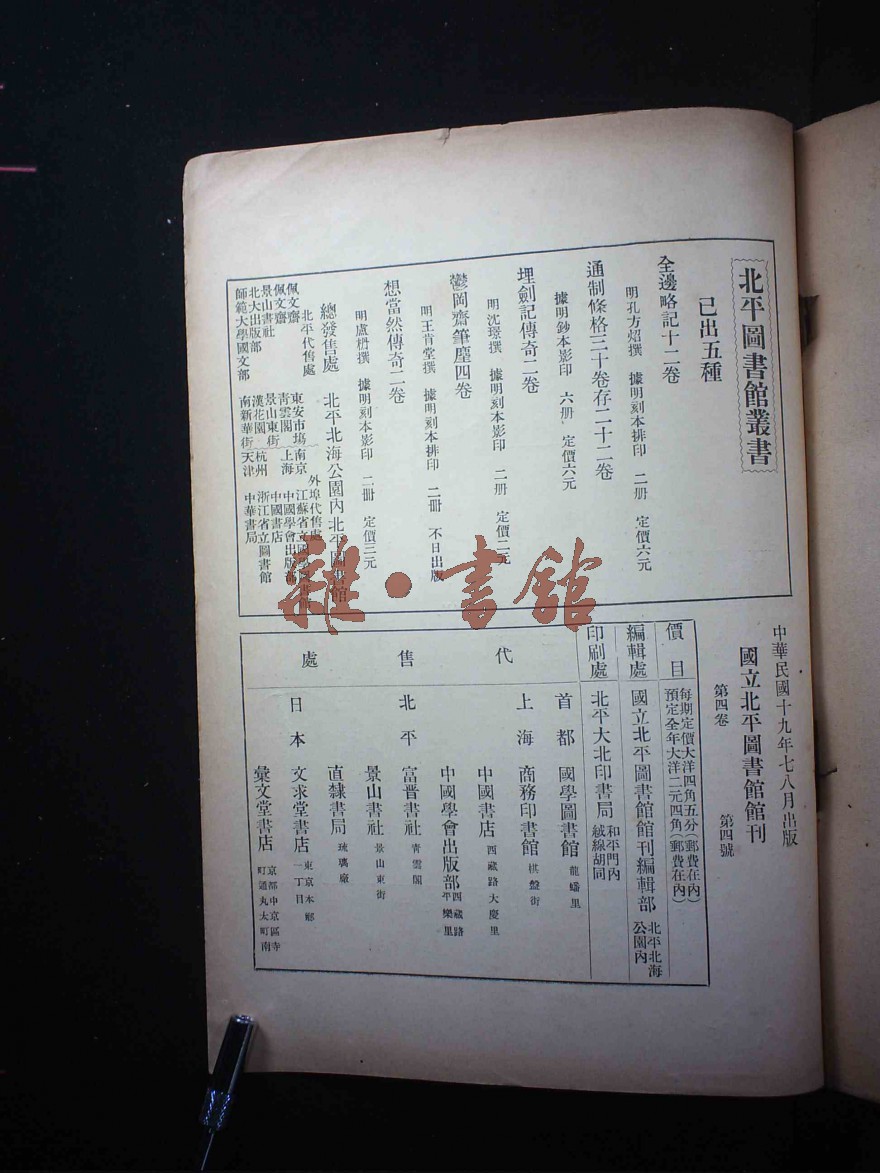 北平圖書館叢書
已出五種
全邊略記十二卷
明孔方炤撰 據明刻本排印 二册 定價六元
通制條格三十卷存二十二卷
據明鈔本影印 六册 定價六元
埋劍記傳奇二卷
明沈璟撰 據明刻本影印 二册 定價二元
鬱岡齋筆塵四卷
明王肯堂撰 據明刻本排印 二册 不日出版
想當然傳奇二卷
明盧柟撰 據明刻本影印 二册 定價二元
總發售處 北平北海公園內北平圖書館
北平代售處
佩文齋 東安市塲
佩文齋 青雲閣
景山書社 景山東街
北大出版部 漢花園
師範大學國文部 南新華街
外埠代售處
南京 江蘇省立國學圖書館
上海 中國學會出版部
中國書店
杭州 浙江省立圖書館
天津 中華書局
中華民國十九年七八月出版
國立北平圖書館館刊
第四卷 第四號
價目 每期定價大洋四角五分(郵費在內)
預定全年大洋二元四角(郵費在內)
編輯處 國立北平圖書館館刊編輯部 北平北海公園內
印刷處 北平大北印書局 和平門內絨線胡同
代售處
首都 國學圖書館 龍蟠里
上海 商務印書館 棋盤街
中國書店 西藏路大慶里
中國學會出版部 西藏路平樂里
北平 富晋書社 青雲閣
景山書社 景山東街
直隸書局 琉璃廠
日本 文求堂書店 東京本鄉一丁目
彙文堂書店 京都中京區寺町通丸太町南
雜·書館